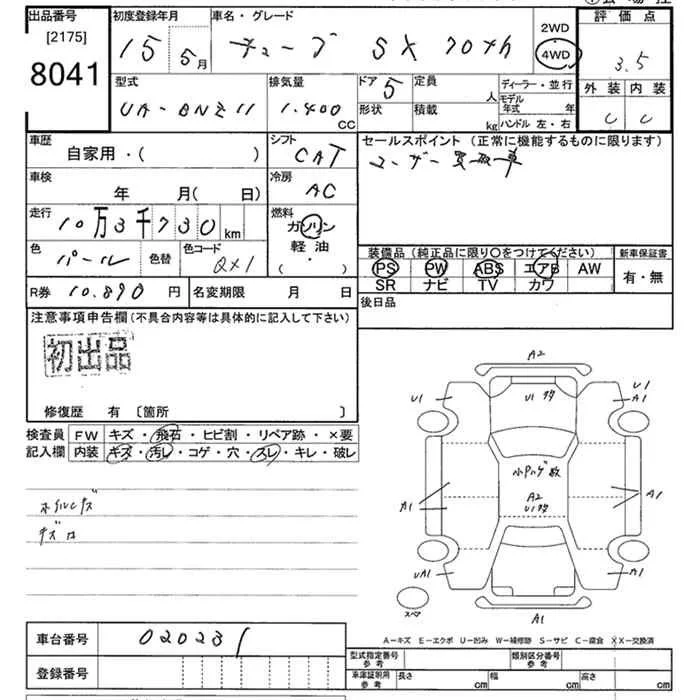 出品番号 初度登録年月 車名・グレード 2WD 評価点
[2175]
8041 15 5月 キューブ SX 70th 4WD 3.5
型式 排気量 ドア 5 定員 人 ディーラー・並行 外装 内装
UA-BNZ11 1.400 CC 形状 積載 kg モデル年式 年 C C
ハンドル 左・右
車歴 シフト セールスポイント (正常に機能するものに限ります)
自家用・( ) CAT ユーザー買取車
車検 冷房
年 月(日) AC
走行 燃料
10万3千730km ガソリン
色 色替 色コード 軽油
パール QX1 ( ・ )
装備品 (純正品に限り○をつけてください) 新車保証書
PS PW ABS エアB AW 有・無
SR ナビ TV カワ
R券 10.890 円 名変期限 月 日 後日品
注意事項申告欄(不具合内容等は具体的に記入して下さい)
初出品
修復歴 有 〔箇所 〕
検査員 FW キズ・飛石・ヒビ割・リペア跡・×要
記入欄 内装 キズ・汚レ・コゲ・穴・スレ・キレ・破レ
A2
U1 U1
A1
小Pハゲ数
A1 A2 A1
UA1 A1
スペア A1
車台番号 020231
登録番号
A-キズ E-エクボ U-凹み W-補修跡 S-サビ C-腐食 XX-交換済
型式指定番号 参考 類別区分番号 参考
車庫証明用 参考 長さ cm 幅 cm 高さ cm